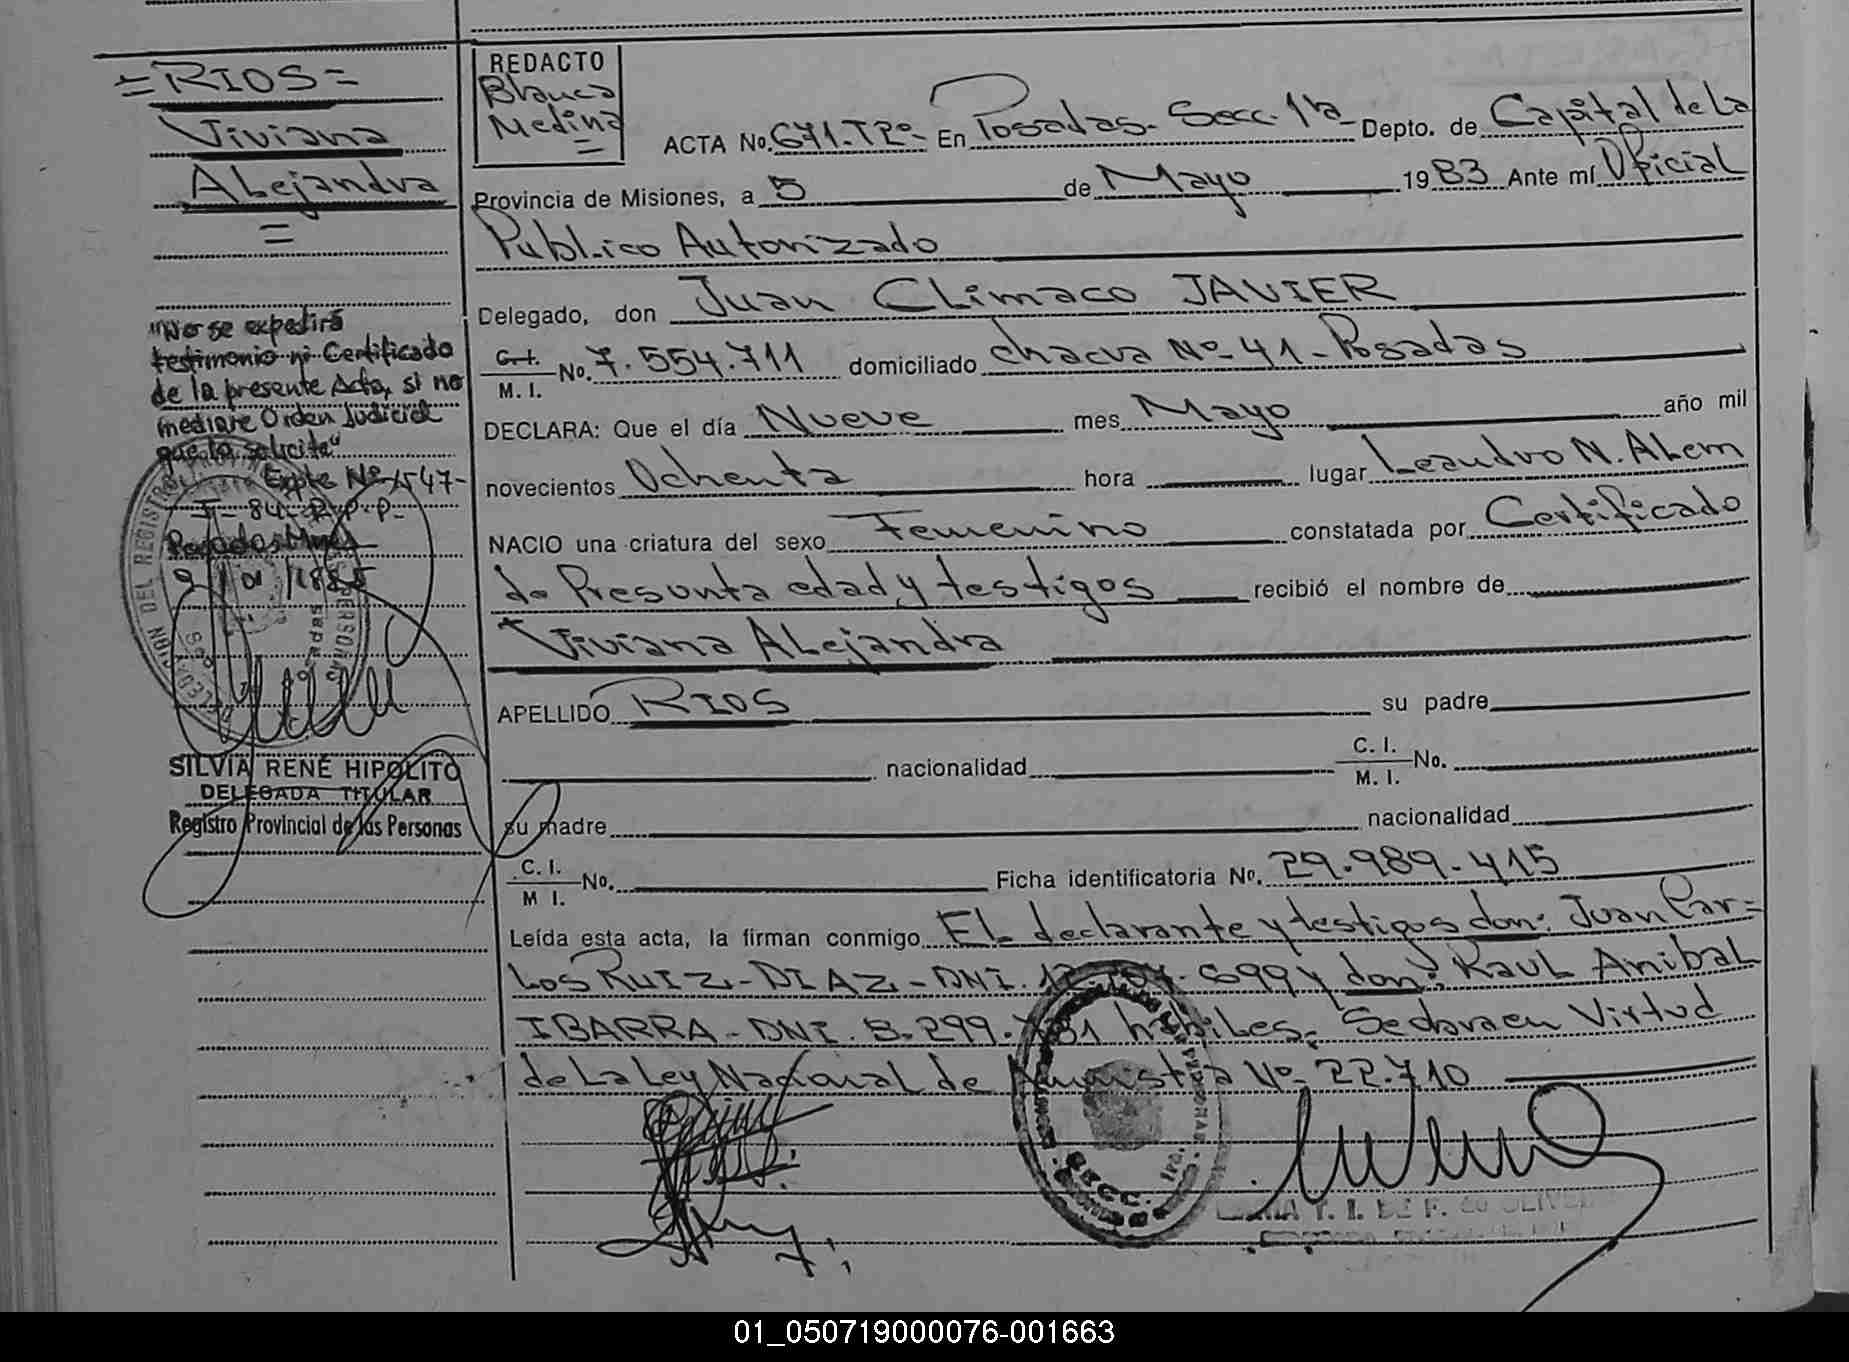 =RIOS=
Viviana
Alejandra
=
"No se expedirá
testimonio ni Certificado
de la presente Acta, si no
mediare Orden Judicial
que lo solicite"
Expte Nº 1547-
84- R.P.P-
Posadas Mnes
9/01/1985
SILVIA RENÉ HIPOLITO
DELEGADA TITULAR
Registro Provincial de las Personas
REDACTO
Blanca
Medina
=
ACTA No. 671.Tº- En Posadas- Secc. 1ra- Depto. de Capital de La
Provincia de Misiones, a 5 de Mayo 1983 Ante mí Oficial
Publico Autorizado
Delegado, don Juan Climaco JAVIER
C. I.
M. I. No. 7.554.711 domiciliado chacra Nº- 41- Posadas
DECLARA: Que el día Nueve mes Mayo año mil
novecientos Ochenta hora lugar Leandro N. Alem
NACIO una criatura del sexo Femenino constatada por Certificado
de Presunta edad y testigos recibió el nombre de
Viviana Alejandra
APELLIDO RIOS su padre
nacionalidad C. I. No.
M. I.
su madre nacionalidad
C. I. No.
M I.
Ficha identificatoria No. 29.989.415
Leída esta acta, la firman conmigo El declarante y testigos don: Juan Car=
los RUIZ-DIAZ- DNI. 699 y don: Raul Anibal
IBARRA- DNI. 8.299. habiles. Se labra en Virtud
de La Ley Nacional de Amnistia Nº- 22.710
SECC. 1ra.
01_050719000076-001663